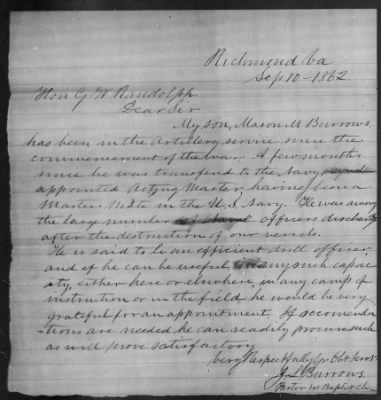 Richmond Va
Sep 10 - 1862
Hon G W Randolph
Dear Sir
My son, Mason M Burrows,
has been in the Artillery service since the
commencement of the war. A few months
since he was transfend to the Navy,
appointed Acting Master, having been a
Masters Mate in the U. S. Navy. He was among
the large number of Naval officers discharged
after the destruction of our vessels.
He is said to be an efficient drill officer,
and if he can be useful, in any such capac-
ity, either here or elsewhere, in any camp of
instruction or in the field he would be very
grateful for an appointment. If recomenda-
tions are needed he can readily procure such
as will prove satisfactory
Very Respectfully Yr Obt Servt
J L Burrows
Pastor 1st Baptist Ch